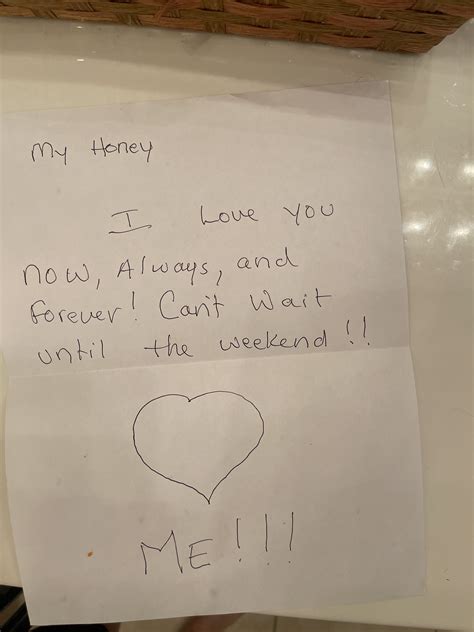 My Honey
I Love you
now, Always, and
forever! Can't Wait
until the weekend!!
ME!!!